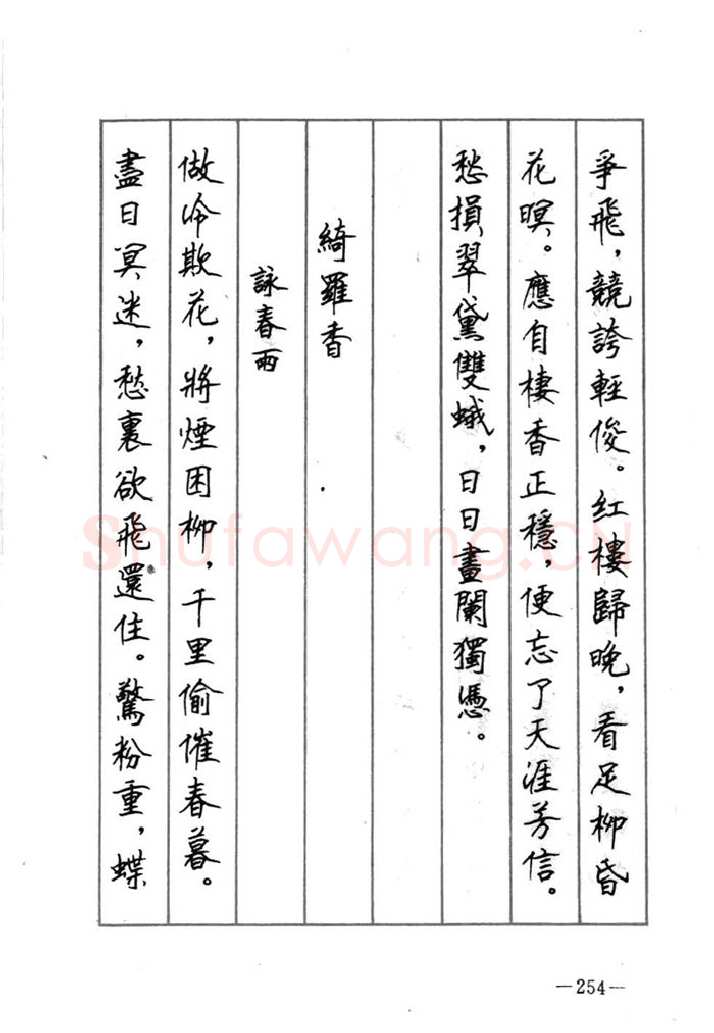 爭飛，競誇輕俊。红樓歸晚，看足柳昏
花暝。應自棲香正穩，便忘了天涯芳信。
愁損翠黛雙蛾，日日畫闌獨憑。
綺羅香
詠春雨
做冷欺花，將煙困柳，千里偷催春暮。
盡日冥迷，愁裏欲飛還住。驚粉重，蝶
—254—
Shufawang.CN